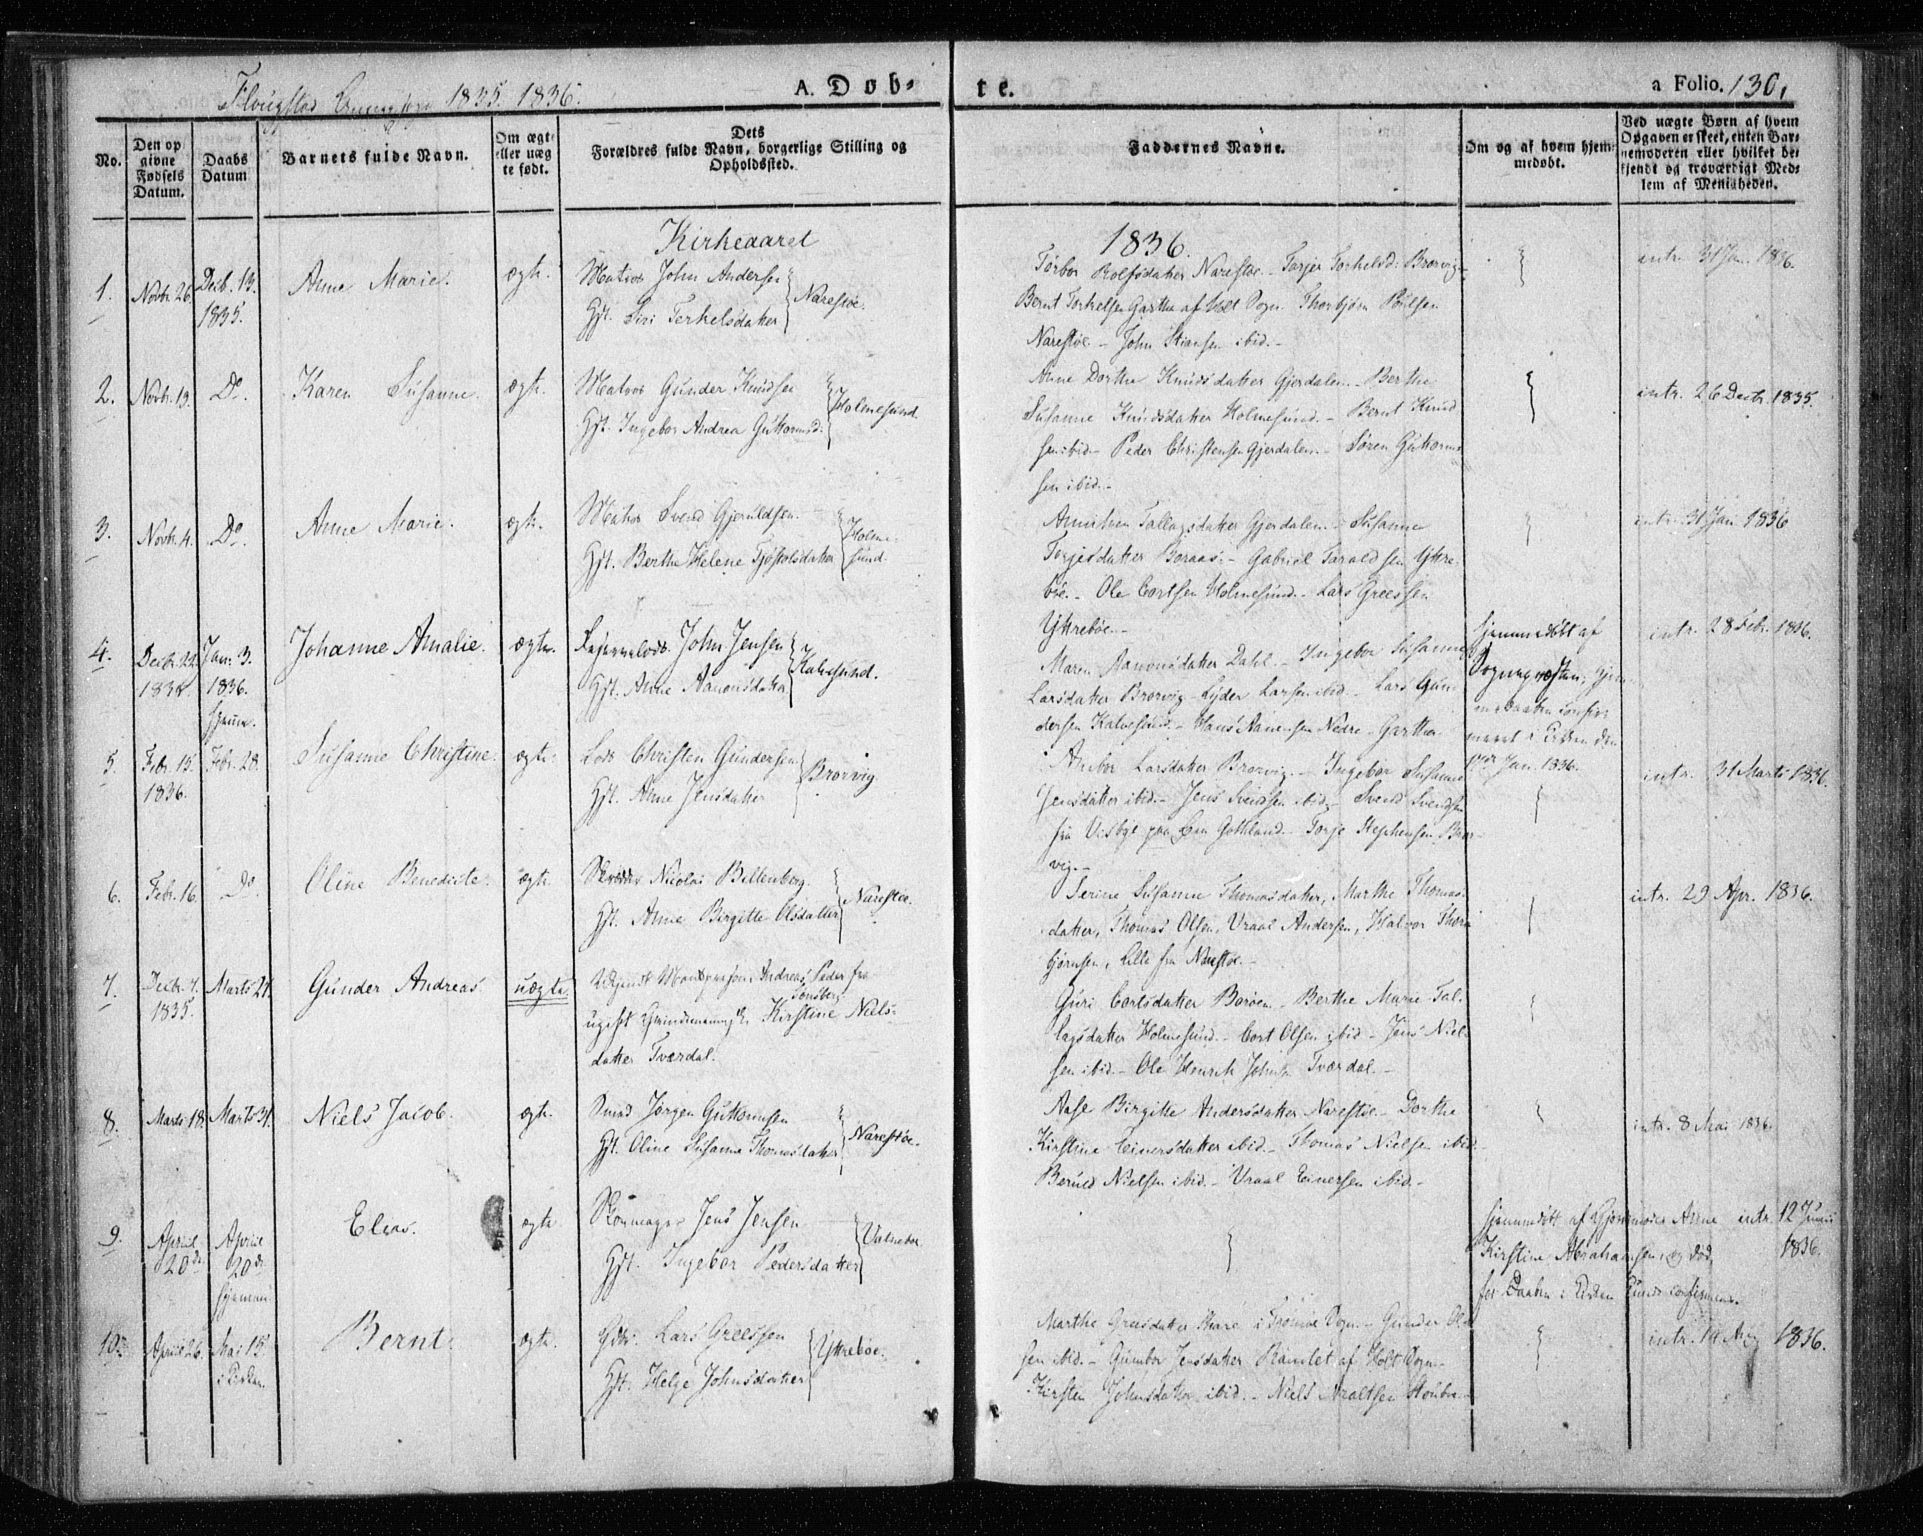 Flougstad 1835. 1836.
A. Døb-
te.
a Folio. 130.
No.
Den opgivne Fødsels Datum.
Daabs Datum
Barnets fulde Navn.
Om ægte eller uægte født.
Dets Forældres fulde Navn, borgerlige Stilling og Opholdssted.
Faddernes Navne.
Om og af hvem hjemmedøbt.
Ved uægte Børn af hvem Opgaven er skeet, enten Barnemoderen eller hvilket bekjendt og troværdigt Medlem af Menigheden.
Kirkeaaret
1836.
1.
Novbr. 26.
Decb. 13. 1835.
Anne Marie.
ægte.
Matros John Andersen
Hst. Siri Terkelsdatter
Narestøe.
Torbor Rolfsdatter Narestøe - Torjer Torkelsd: Brorvig -
Bernt Torkelsen Gartha af Holt Sogn. Thorbjørn Poulsen
Narestøe - John Stiansen ibid. -
intr. 31 Jan. 1836.
2.
Novbr. 19.
Do.
Karen Susanne.
ægte.
Matros Gunder Knudsen
Hst. Ingebor Andrea Guttormsd.
Holmesund.
Anne Dorthe Knudsdatter Gjerdalen - Berthe
Susanne Knudsdatter Holmesund. - Bernt Knud
sen ibid. - Peder Christensen Gjerdalen. - Søren Guttorm
sen ibid. -
intr. 26 Decbr. 1835.
3.
Novbr. 4.
Do.
Anne Marie.
ægte.
Matros Svend Gjeruldsen.
Hst. Berthe Helene Tjøstolsdatter
Holmesund.
Tallagsdatter Gjerdalen. - Susanne
Torjesdatter Boraas. - Gabriel Taraldsen Yttre-
bøe. - Ole Cortsen Holmesund. - Lars Greesen
Yttrebøe. -
intr. 31 Jan. 1836
4.
Decbr. 22. 1835.
Jan. 3. 1836. hjem.
Johanne Amalie.
ægte.
John Jensen
Hst. Anne Aanonsdatter
Kalvesund.
Maren Aanonsdatter Dahl. - Ingebor Susanne
Larsdatter Brorvig - Lyder Larsen ibid - Lars Gun
dersen Kalvesund. - Hans Aanensen Nedre - Garthe
hjemmedøbt af
Sognepræsten, hjem
medaaben confir
meret i Kirken den
Jan. 1836.
intr. 28 Febr. 1836.
5.
Febr. 15. 1836.
Febr. 28.
Susanne Christine.
ægte.
Lods Christen Gundersen
Hst. Anne Jensdatter
Brorvig
Anebor Larsdatter Brorvig. - Ingebor Susanne
Jensdatter ibid. - Jens Svendsen ibid - Svend Svendsen
fra Visbye paa Gothland. - Torje Stephensen Bror
vig. -
intr. 31 Marts 1836.
6.
Febr. 16.
Do.
Oline Benedicte.
ægte.
Skrædder Nicolai Biltenberg.
Hst. Anne Birgitte Olsdatter
Narestøe.
Serine Susanne Thomasdatter, Marthe Thomas-
datter, Thomas Olsen, Vraal Andersen, Halvor Thor
bjørnsen, alle fra Narestøe. -
intr. 29 Apr. 1836.
7.
Decbr. 7. 1835.
Marts 27.
Gunder Andreas
uægte.
Andreas Peder fra
Tønsberg
ugift Kirstine Niels-
datter Tverdal.
Guri Cortsdatter Borøen. - Berthe Marie Tal-
lagsdatter Holmesund. - Cort Olsen ibid. - Jens Niel
sen ibid. - Ole Henrik Johns. Tværdal. -
8.
Marts 18.
Marts 31.
Niels Jacob.
ægte.
Smed Jørgen Guttormsen
Hst. Oline Susanne Thomasdatter
Narestøe.
Aase Birgitte Andersdatter Narestøe. Dorthe
Kirstine Einersdatter ibid. - Thomas Nielsen ibid.
Beruld Nielsen ibid. - Vraal Einersen ibid. -
intr. 8 Mai 1836.
9.
April 20de
April 20de hjemme.
Elias.
ægte.
Skomager Jens Jensen
Hst. Ingebor Pedersdatter
hjemmedøbt af Gjormoder Anne
Kirstine Abrahamsen, og død
før Daaben i Kirken kunde confirmeres.
intr. 12 Junii 1836.
10.
April 26.
Mai 15. i Kirken.
Bernt.
ægte.
Gdbr. Lars Greessen
Hst. Helge Johnsdatter
Yttrebøe.
Marthe Greesdatter Skare i Tromø Sogn. - Gunder Ol
sen ibid. - Gumbor Jensdatter Ramlet af Holt Sogn. -
Kirsten Johnsdatter ibid. - Niels
intr. 19 1836.